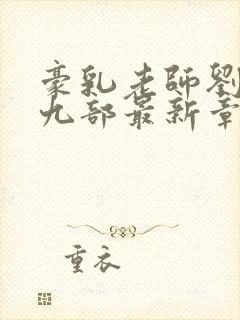 豪乳老師劉
九部最新章
重衣